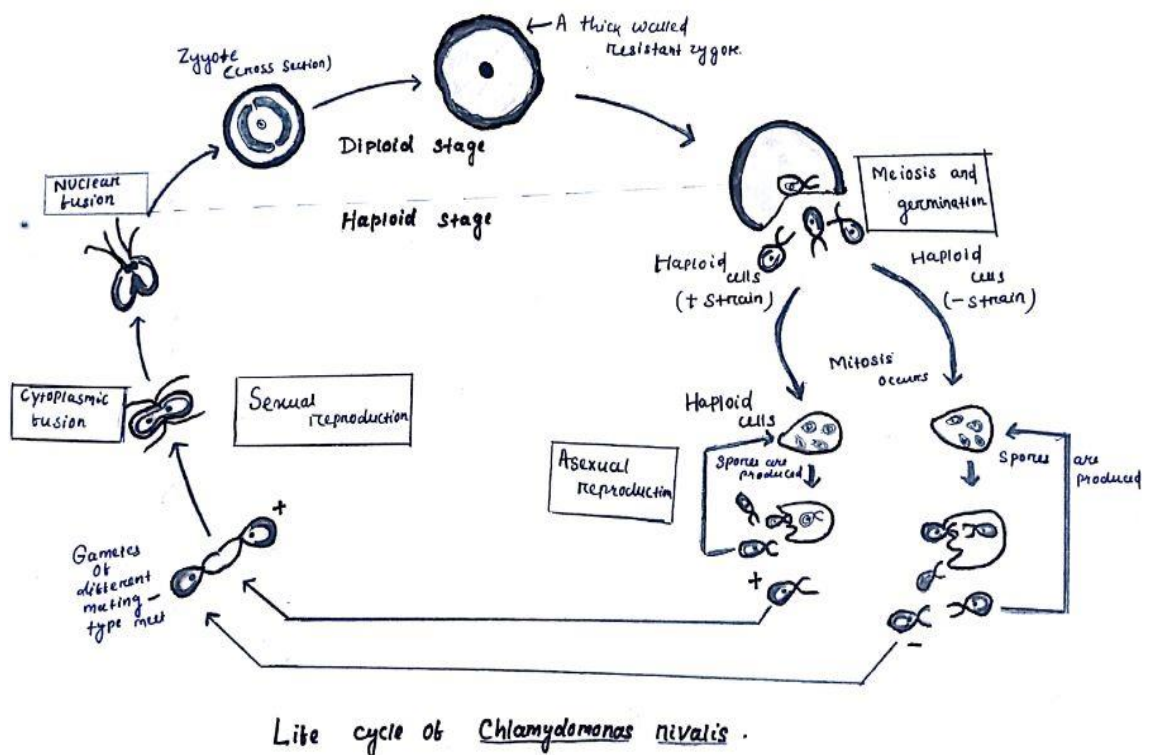 A thick walled
resistant zygote.
Zygote
(cross section)
Diploid stage
Nuclear
fusion
Haploid stage
Meiosis and
germination
Haploid
cells
(+ strain)
Haploid
cells
(- strain)
Mitosis
occurs
Cytoplasmic
fusion
Sexual
reproduction
Haploid
cells
Asexual
reproduction
Spores are
produced
Spores are
produced
+
Gametes
of
different
mating-
type meet
+
-
Life cycle of Chlamydomonas nivalis.